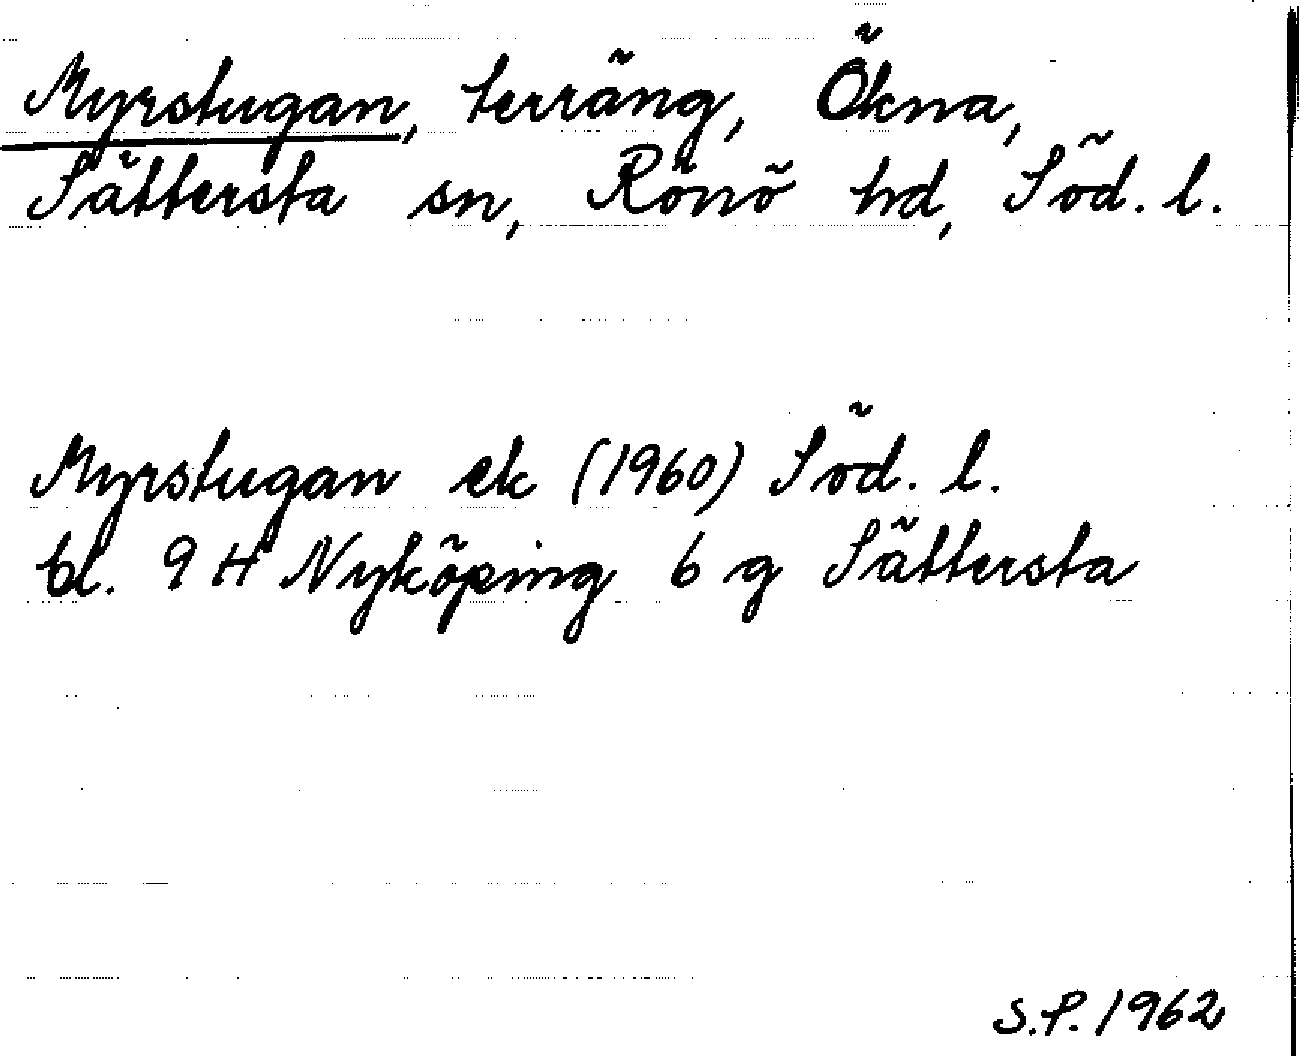 Myrstugan, terräng, Ökna,
Sättersta sn, Rönö hd, Söd. l.
Myrstugan ek (1960) Söd. l.
bl. 9 H Nyköping 6 g Sättersta
S.P. 1962